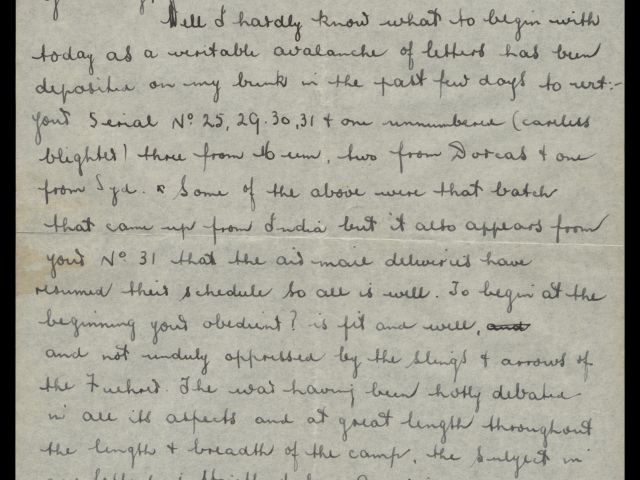 Well I hardly know what to begin with
today as a veritable avalanche of letters has been
deposited on my bunk in the past few days to wit:-
yours Serial Nº 25, 29.30,31 & one unnumbered (careless
blighter) three from Mum, two from Dorcas & one
from Syd. & Some of the above were that batch
that came up from India but it also appears from
yours Nº 31 that the air mail deliveries have
resumed their schedule so all is well. To begin at the
beginning yours obedient? is fit and well, and
and not unduly oppressed by the slings & arrows of
the Fuehrer. The war having been hotly debated
in all its aspects and at great length throughout
the length & breadth of the camp, the subject in